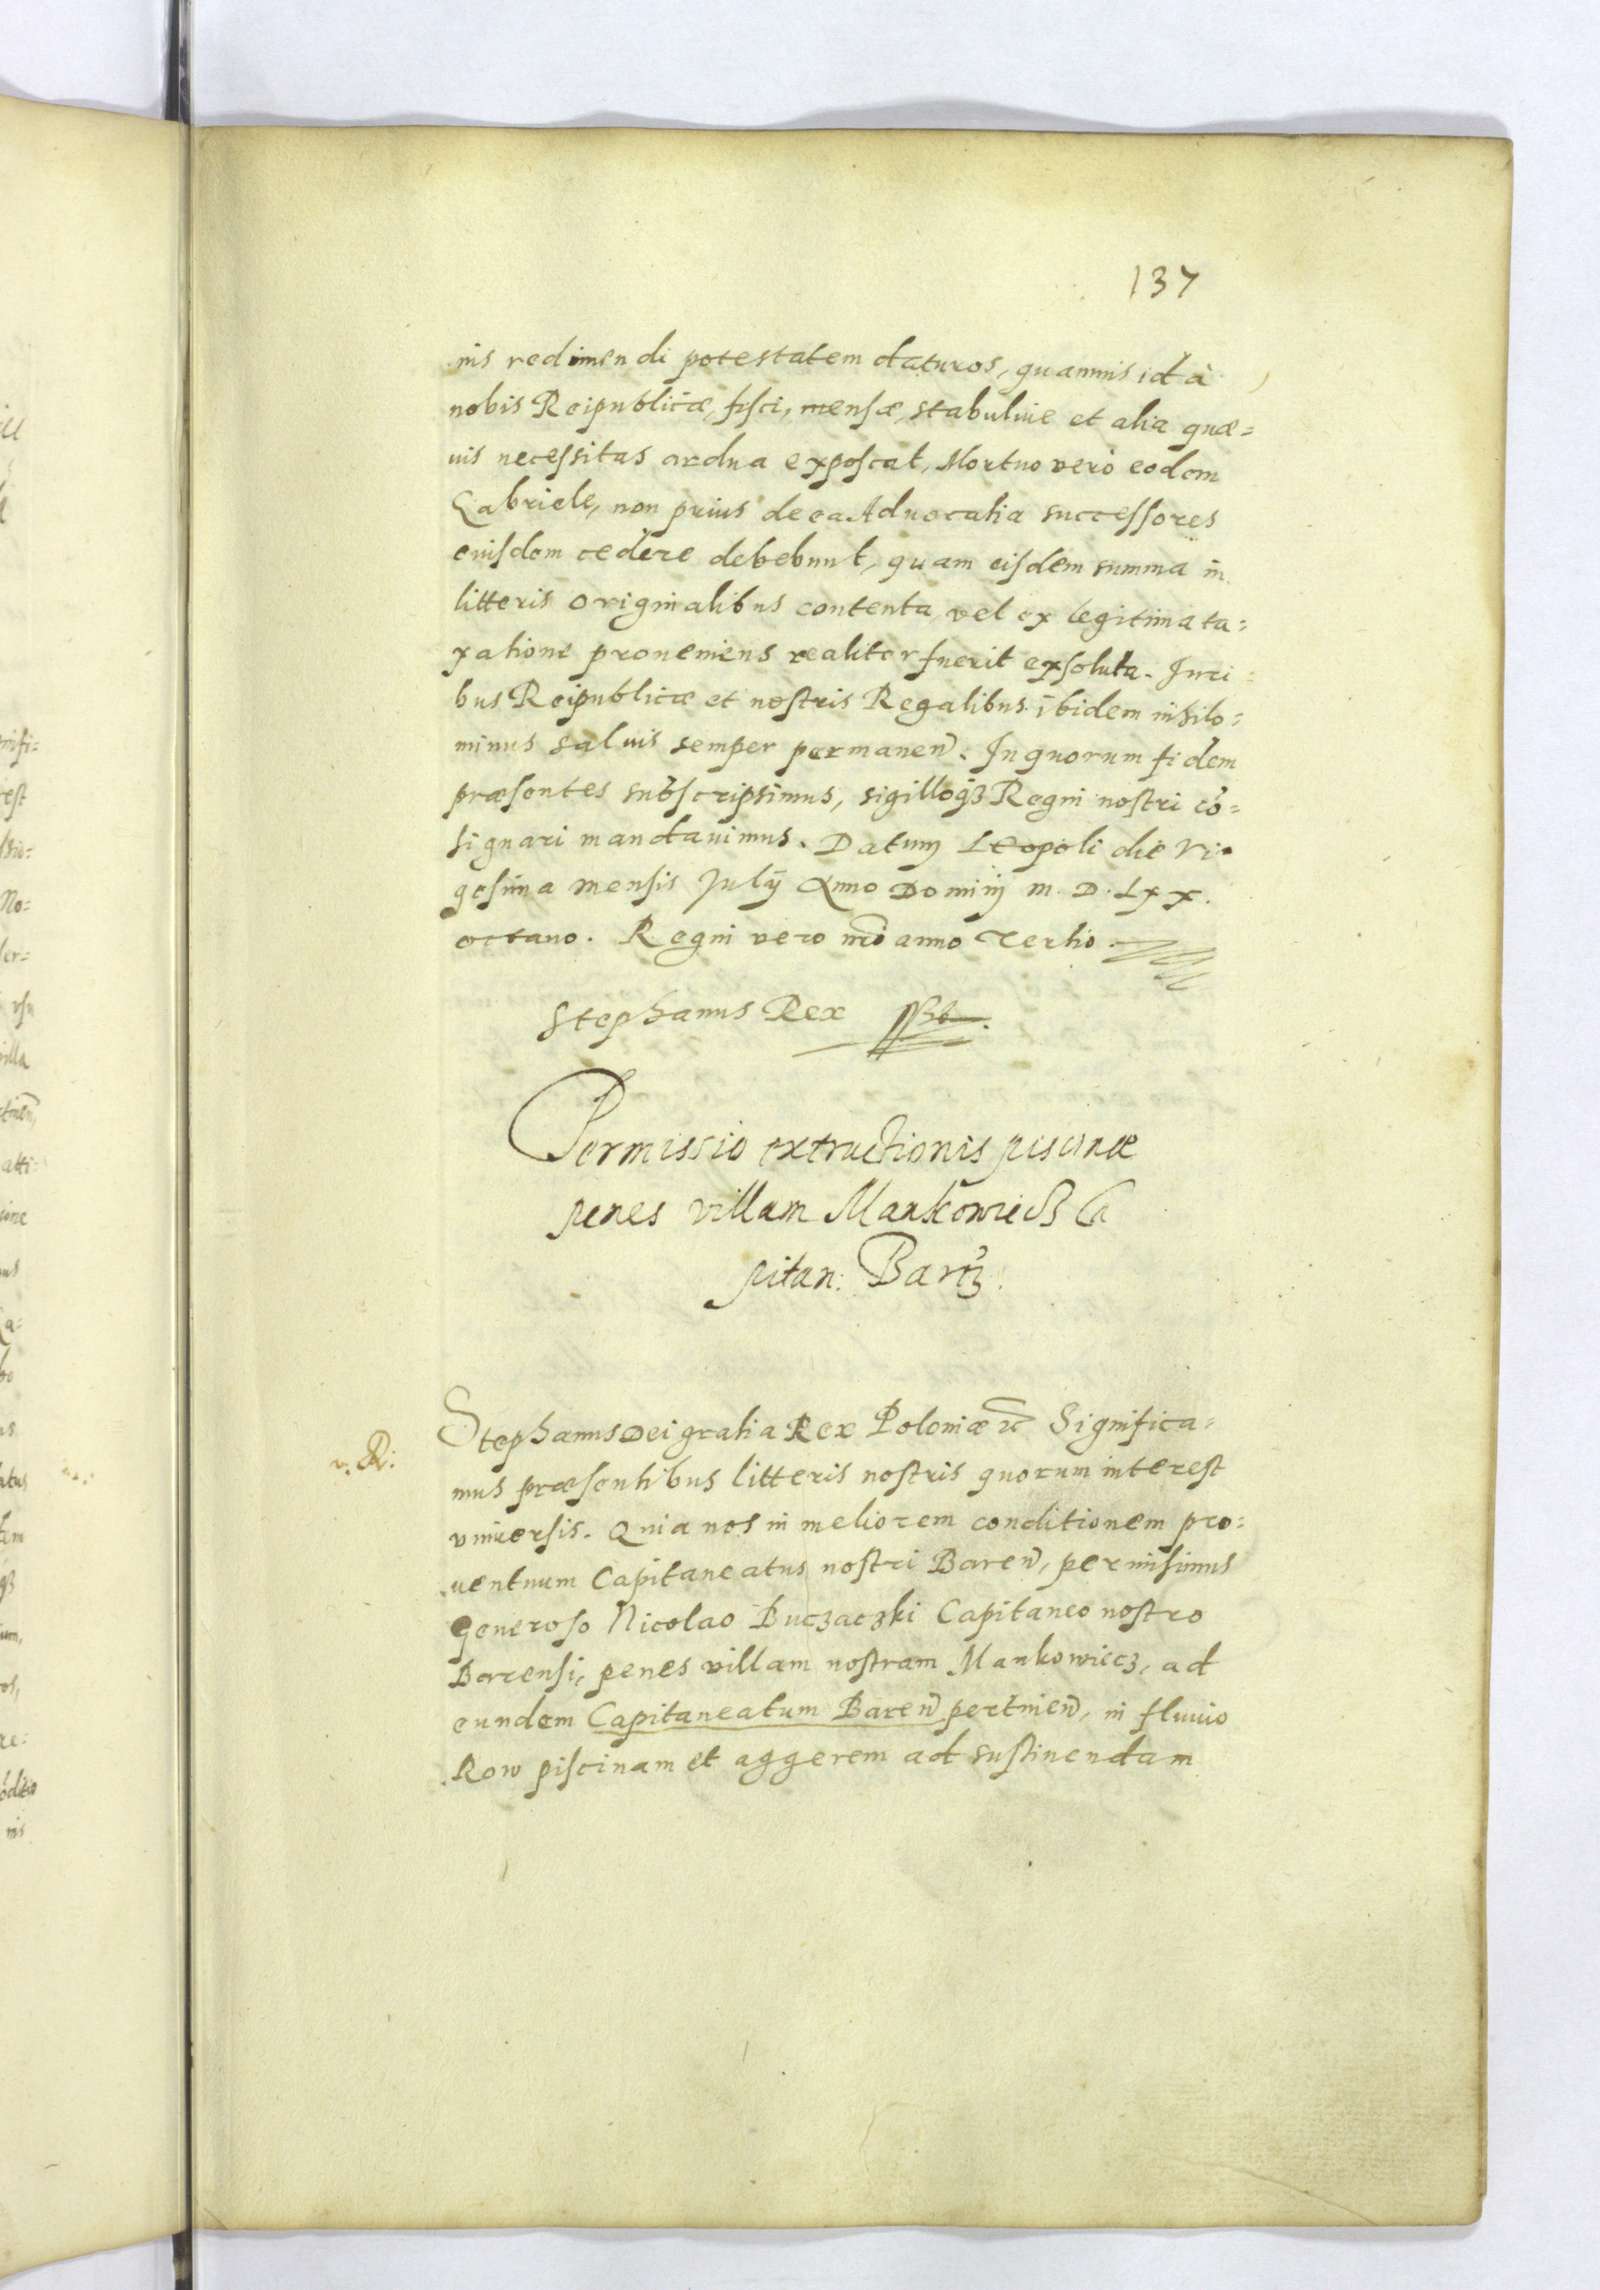 137
nis redimendi potestatem daturos, quamuis id à
nobis Reipublicæ, fisci, mensæ, stabuliue et alia quæ=
uis necessitas ardua exposcat, Mortuo verò eodem
Gabriele, non prius de ea Aduocatia successores
eiusdem cedere debebunt, quam eisdem summa in
litteris originalibus contenta, vel ex legitima ta=
xatione proueniens realiter fuerit exsoluta. Juri=
bus Reipublicæ et nostris Regalibus ibidem nihilo=
minus saluis semper permanen̄. In quorum fidem
præsentes subscripsimus, sigilloqȝ Regni nostri cō=
signari mandauimus. Datum Leopoli die vi=
gesima mensis Julij Anno Domini M. D. Lxx.
octauo. Regni vero nrō anno Tertio.
Stephanus Rex sst.
Permissio extructionis piscinæ
penes villam Mankowiecz Ca
pitan: Barē.
v. R:
Stephanus Dei gratia Rex Poloniæ ꝛc̄ Significa=
mus præsentibus litteris nostris quorum interest
vniuersis. Quia nos in meliorem conditionem pro=
uentuum Capitaneatus nostri Baren̄, permisimus
Generoso Nicolao Buczaczki Capitaneo nostro
Barensi, penes villam nostram Mankowiecz, ad
eundem Capitaneatum Baren̄ pertinen̄, in fluuio
Row piscinam et aggerem ad sustinendam